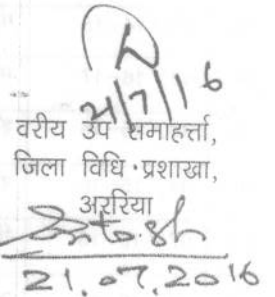 21/7/16
वरीय उप समाहर्त्ता,
जिला विधि प्रशाखा,
अररिया
21.07.2016